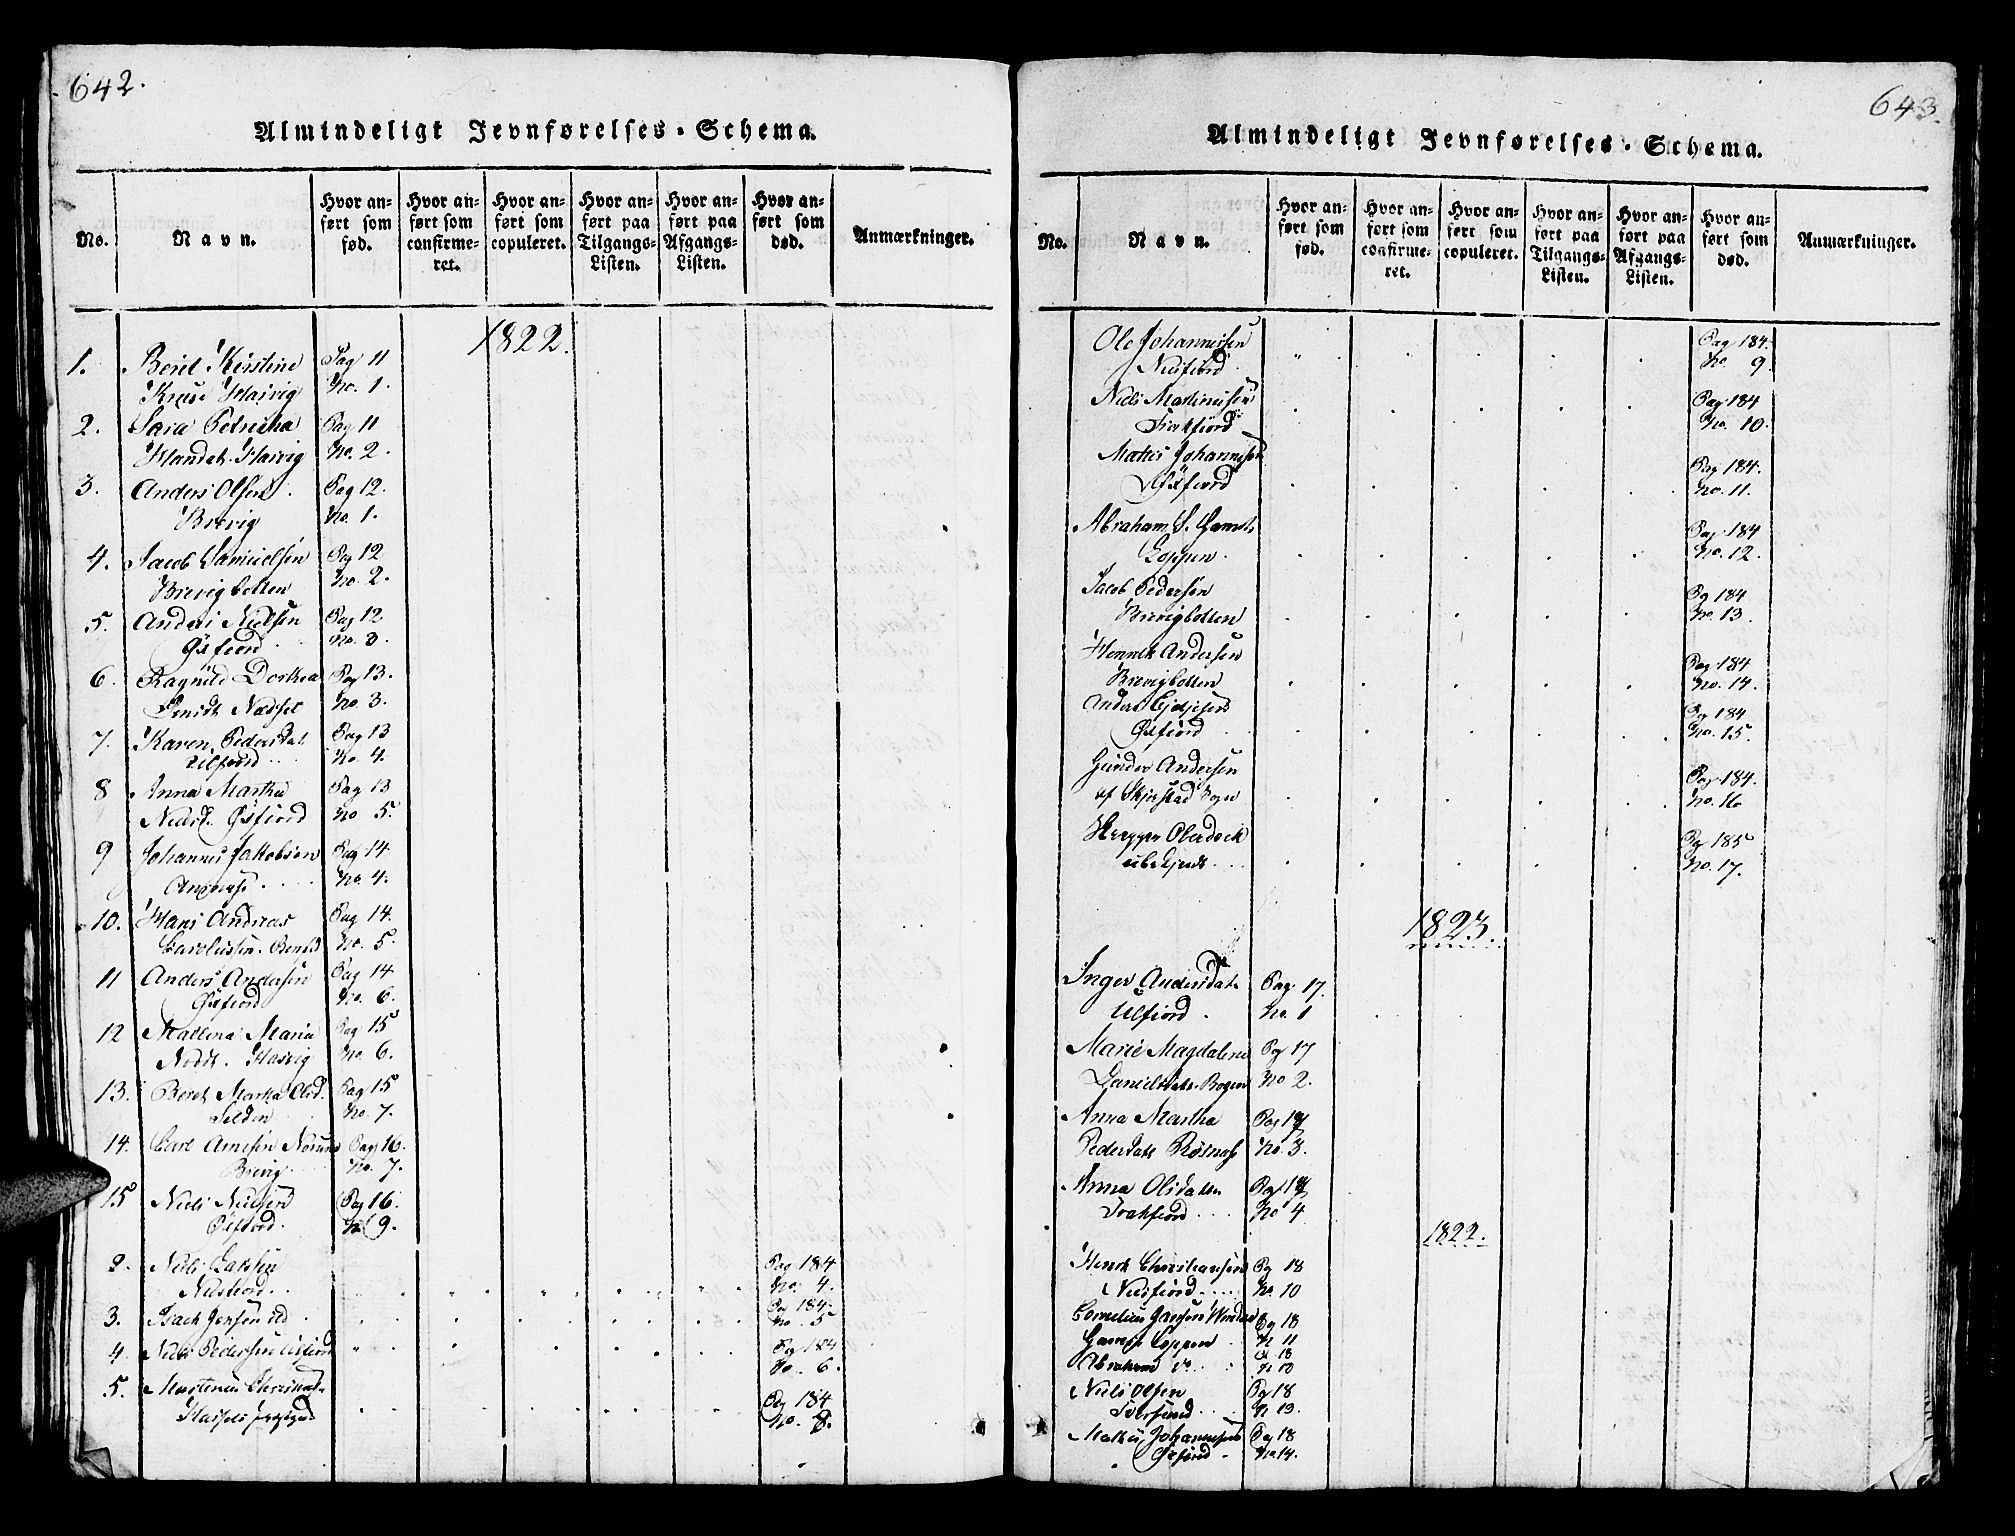 642.
Almindeligt Jevnførelses-Schema.
No.
Navn.
Hvor anført som fød.
Hvor anført som confirmeret.
Hvor anført som copuleret.
Hvor anført paa Tilgangs-Listen.
Hvor anført paa Afgangs-Listen.
Hvor anført som død.
Anmærkninger.
1822.
1. Berit Kirstine Pag 11
Kruse Hasvig No. 1.
2. Sara Petricha Pag 11
Hasvig No. 2.
3. Anders Olsen Pag 12.
Brevig No. 1.
4. Jacob Samuelsen Pag 12
Brevigbotten No. 2.
5. Anders Nielsen Pag 12
Øxfiord No. 3.
6. Ragnild Dorthea Pag 13.
No. 3.
7. Karen Pedersdat. Pag 13
Ulfiord No. 4.
8 Anna Martha Pag 13
Nielsd. Øxfiord No 5.
9 Johannes Jakobsen Pag 14.
No. 4.
10. Hans Andreas Pag 14.
Carolussen No. 5.
11 Anders Andersen Pag 14
Øxfiord No. 6.
12 Mallena Maria Pag 15
Hasvig No. 6.
13. Beret Marha Pag 15
No. 7.
14. Carl Arnesen Pag 16.
Brevig No. 7.
15 Niels Nielsen Pag 16.
Øxfiord. No 9.
2. Niels Larsen Pag 184
Nusfiord No. 4.
3. Isach Jensen Pag 184.
No. 5
4. Niels Pedersen Ulfiord Pag 184
No. 6.
5. Martinus Pag 184
No. 8.
643.
Almindeligt Jevnførelses-Schema.
No.
Navn.
Hvor anført som fød.
Hvor anført som confirmeret.
Hvor anført som copuleret.
Hvor anført paa Tilgangs-Listen.
Hvor anført paa Afgangs-Listen.
Hvor anført som død.
Anmærkninger.
Ole Johannesen Pag 184.
Nusfiord No. 9.
Niels Martinusen Pag 184
No. 10.
Mathis Johannesen Pag 184.
Øxfiord No. 11.
Abraham Pag 184
Loppen No. 12.
Jacob Pedersen Pg 184
Brevigbotten No. 13.
Henrik Andersen Pag 184
Brevigbotten No. 14.
Anders Pag 184
Øxfiord No. 15.
Gunder Andersen Pag. 184.
af Skjerstad Sogn No. 16
Pag 185
ubekjendt No. 17.
1823.
Inger Andersdat. Pag. 17.
Ulfiord No. 1
Marie Magdalena Pag 17
Danielsdat. Bogen No 2.
Anna Martha Pag 17
Pedersdat. No. 3.
Anna Olsdatter Pag 17
No 4
1822.
Henrik Christiansen Pg 18
Nusfiord No. 10
Cornelius Pg 18
Loppen N 11
Abraham do 18
Niels Olsen Pg 18
N 13.
Mathis Johannesen Pag 18
Øxfiord No. 14.